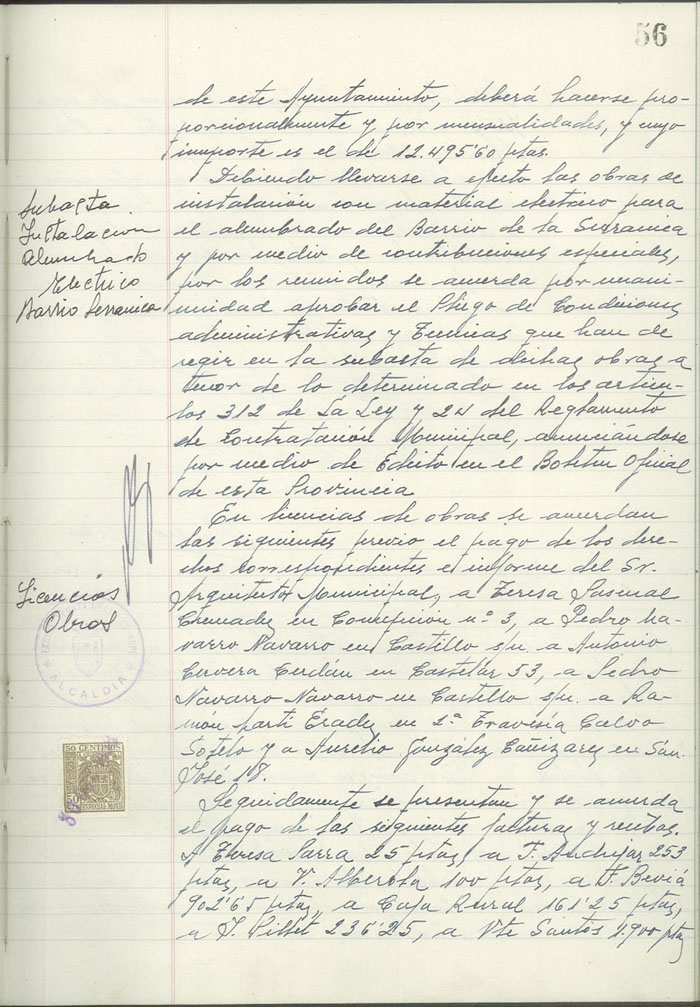 56
de este Ayuntamiento, deberá hacerse pro-
porcionalmente y por mensualidades, y cuyo
importe es el de 12.495'60 ptas.
Subasta
Instalación
Alumbrado
Electrico
Barrio Serranica
Debiendo llevarse a efecto las obras de
instalación con material eléctrico para
el alumbrado del Barrio de la Serranica
y por medio de contribuciones especiales,
por los reunidos se acuerda por unani-
midad aprobar el Pliego de Condiciones
administrativas y Tecnicas que han de
regir en la subasta de dichas obras a
tenor de lo determinado en los articu-
los 312 de La Ley y 24 del Reglamento
de Contratación Municipal, anunciándose
por medio de Edicto en el Boletin Oficial
de esta Provincia
Licencias
Obras
En licencias de obras se acuerdan
las siguientes previo el pago de los dere-
chos correspondientes e informe del Sr.
Arquitecto Municipal, a Teresa Pascual
en Concepción nº 3, a Pedro Na-
varro Navarro en Castillo s/n. a Antonio
Cervera Cerdán en Castelar 53, a Pedro
Navarro Navarro en Castillo s/n. a Ra-
mon en 2ª Travesía Calvo
Sotelo y a Aurelio González Cañizares en San
José
Seguidamente se presentan y se acuerda
el pago de las siguientes facturas y recibos.
A Teresa Parra 25 ptas, a F. Andujar 253
ptas, a V. Alberola 100 ptas, a F. Beviá
902'65 ptas, a Caja Rural 161'25 ptas,
a 236'25, a Vte Santos 1.900 ptas
ALCALDIA
50 CENTIMOS
50
ESPECIAL MOVIL